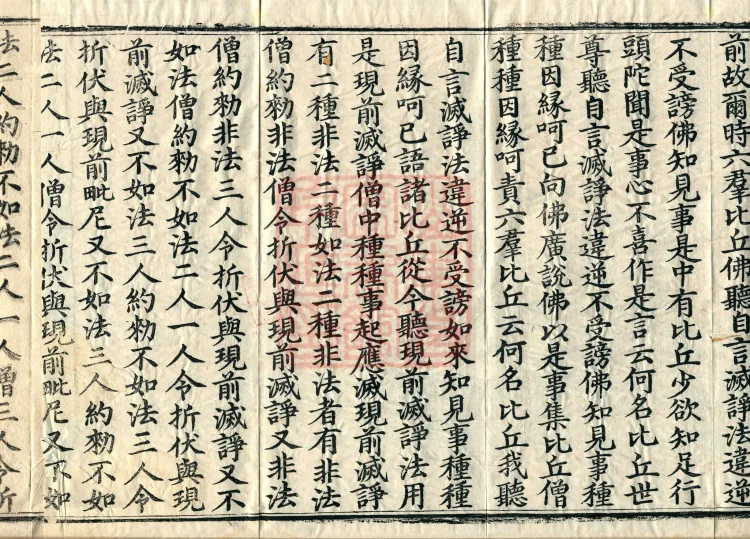 前故爾時六羣比丘佛聽自言滅諍法違逆
不受謗佛知見事是中有比丘少欲知足行
頭陀聞是事心不喜作是言云何名比丘世
尊聽自言滅諍法違逆不受謗佛知見事種
種因緣呵已向佛廣說佛以是事集比丘僧
種種因緣呵責六羣比丘云何名比丘我聽
自言滅諍法違逆不受謗如來知見事種種
因緣呵已語諸比丘從今聽現前滅諍法用
是現前滅諍僧中種種事起應滅現前滅諍
有二種非法二種如法二種非法者有非法
僧約勑非法僧令折伏與現前滅諍又非法
僧約勑非法三人令折伏與現前滅諍又不
如法僧約勑不如法二人一人令折伏與現
前滅諍又不如法三人約勑不如法三人令
折伏與現前毗尼又不如法三人約勑不如
法二人一人僧令折伏與現前毗尼又不如
法二人約勑不如法二人一人僧三人令折